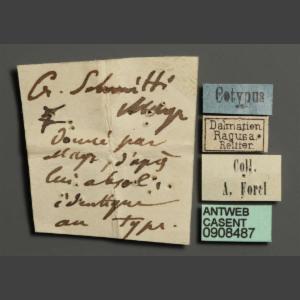 Cr. Schmitti
Mayr
☿.
Donné par
Mayr, d'après
lui absol.
identique
au type.
Cotypus
Dalmatien
Ragusa.
Reitter.
Coll.
A. Forel
ANTWEB
CASENT
0908487